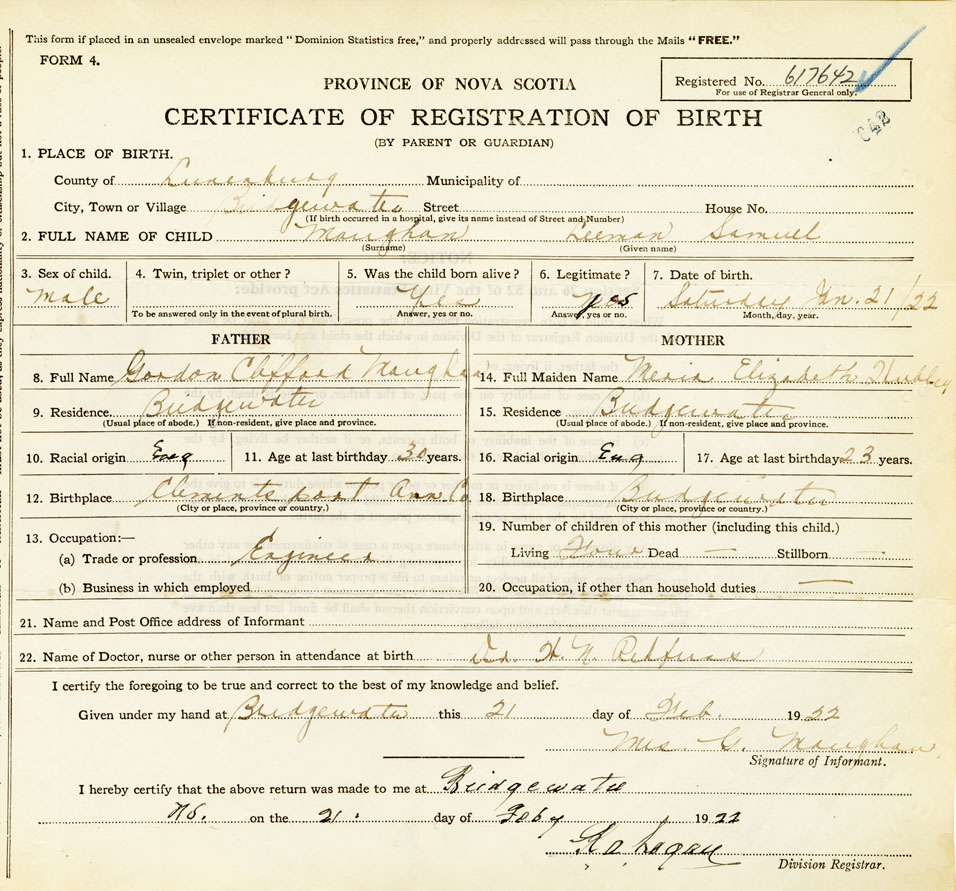 This form if placed in an unsealed envelope marked "Dominion Statistics free," and properly addressed will pass through the Mails "FREE."
FORM 4.
Registered No. 617642
For use of Registrar General only.
C42
PROVINCE OF NOVA SCOTIA
CERTIFICATE OF REGISTRATION OF BIRTH
(BY PARENT OR GUARDIAN)
1. PLACE OF BIRTH.
County of Lunenburg Municipality of
City, Town or Village Bridgewater Street House No.
(If birth occurred in a hospital, give its name instead of Street and Number)
2. FULL NAME OF CHILD Maughan Leeman Samuel
(Surname) (Given name)
3. Sex of child. 4. Twin, triplet or other? 5. Was the child born alive? 6. Legitimate? 7. Date of birth.
Male Yes yes Saturday Jan. 21/22
To be answered only in the event of plural birth. Answer, yes or no. Answer, yes or no. Month, day, year.
FATHER MOTHER
8. Full Name Gordon Clifford Maughan 14. Full Maiden Name Elizabeth
9. Residence. Bridgewater 15. Residence Bridgewater
(Usual place of abode.) If non-resident, give place and province. (Usual place of abode.) If non-resident, give place and province.
10. Racial origin Eng 11. Age at last birthday 30 years. 16. Racial origin Eng 17. Age at last birthday 23 years.
12. Birthplace Clementsport Ann Co 18. Birthplace Bridgewater
(City or place, province or country.) (City or place, province or country.)
19. Number of children of this mother (including this child.)
13. Occupation:—
(a) Trade or profession. Engineer Living Four Dead — Stillborn —
(b) Business in which employed 20. Occupation, if other than household duties —
21. Name and Post Office address of Informant
22. Name of Doctor, nurse or other person in attendance at birth Dr. H. N.
I certify the foregoing to be true and correct to the best of my knowledge and belief.
Given under my hand at Bridgewater this 21 day of Feb. 1922
Mrs. G. Maughan
Signature of Informant.
I hereby certify that the above return was made to me at Bridgewater
NS. on the 21. day of Feby 1922
Division Registrar.